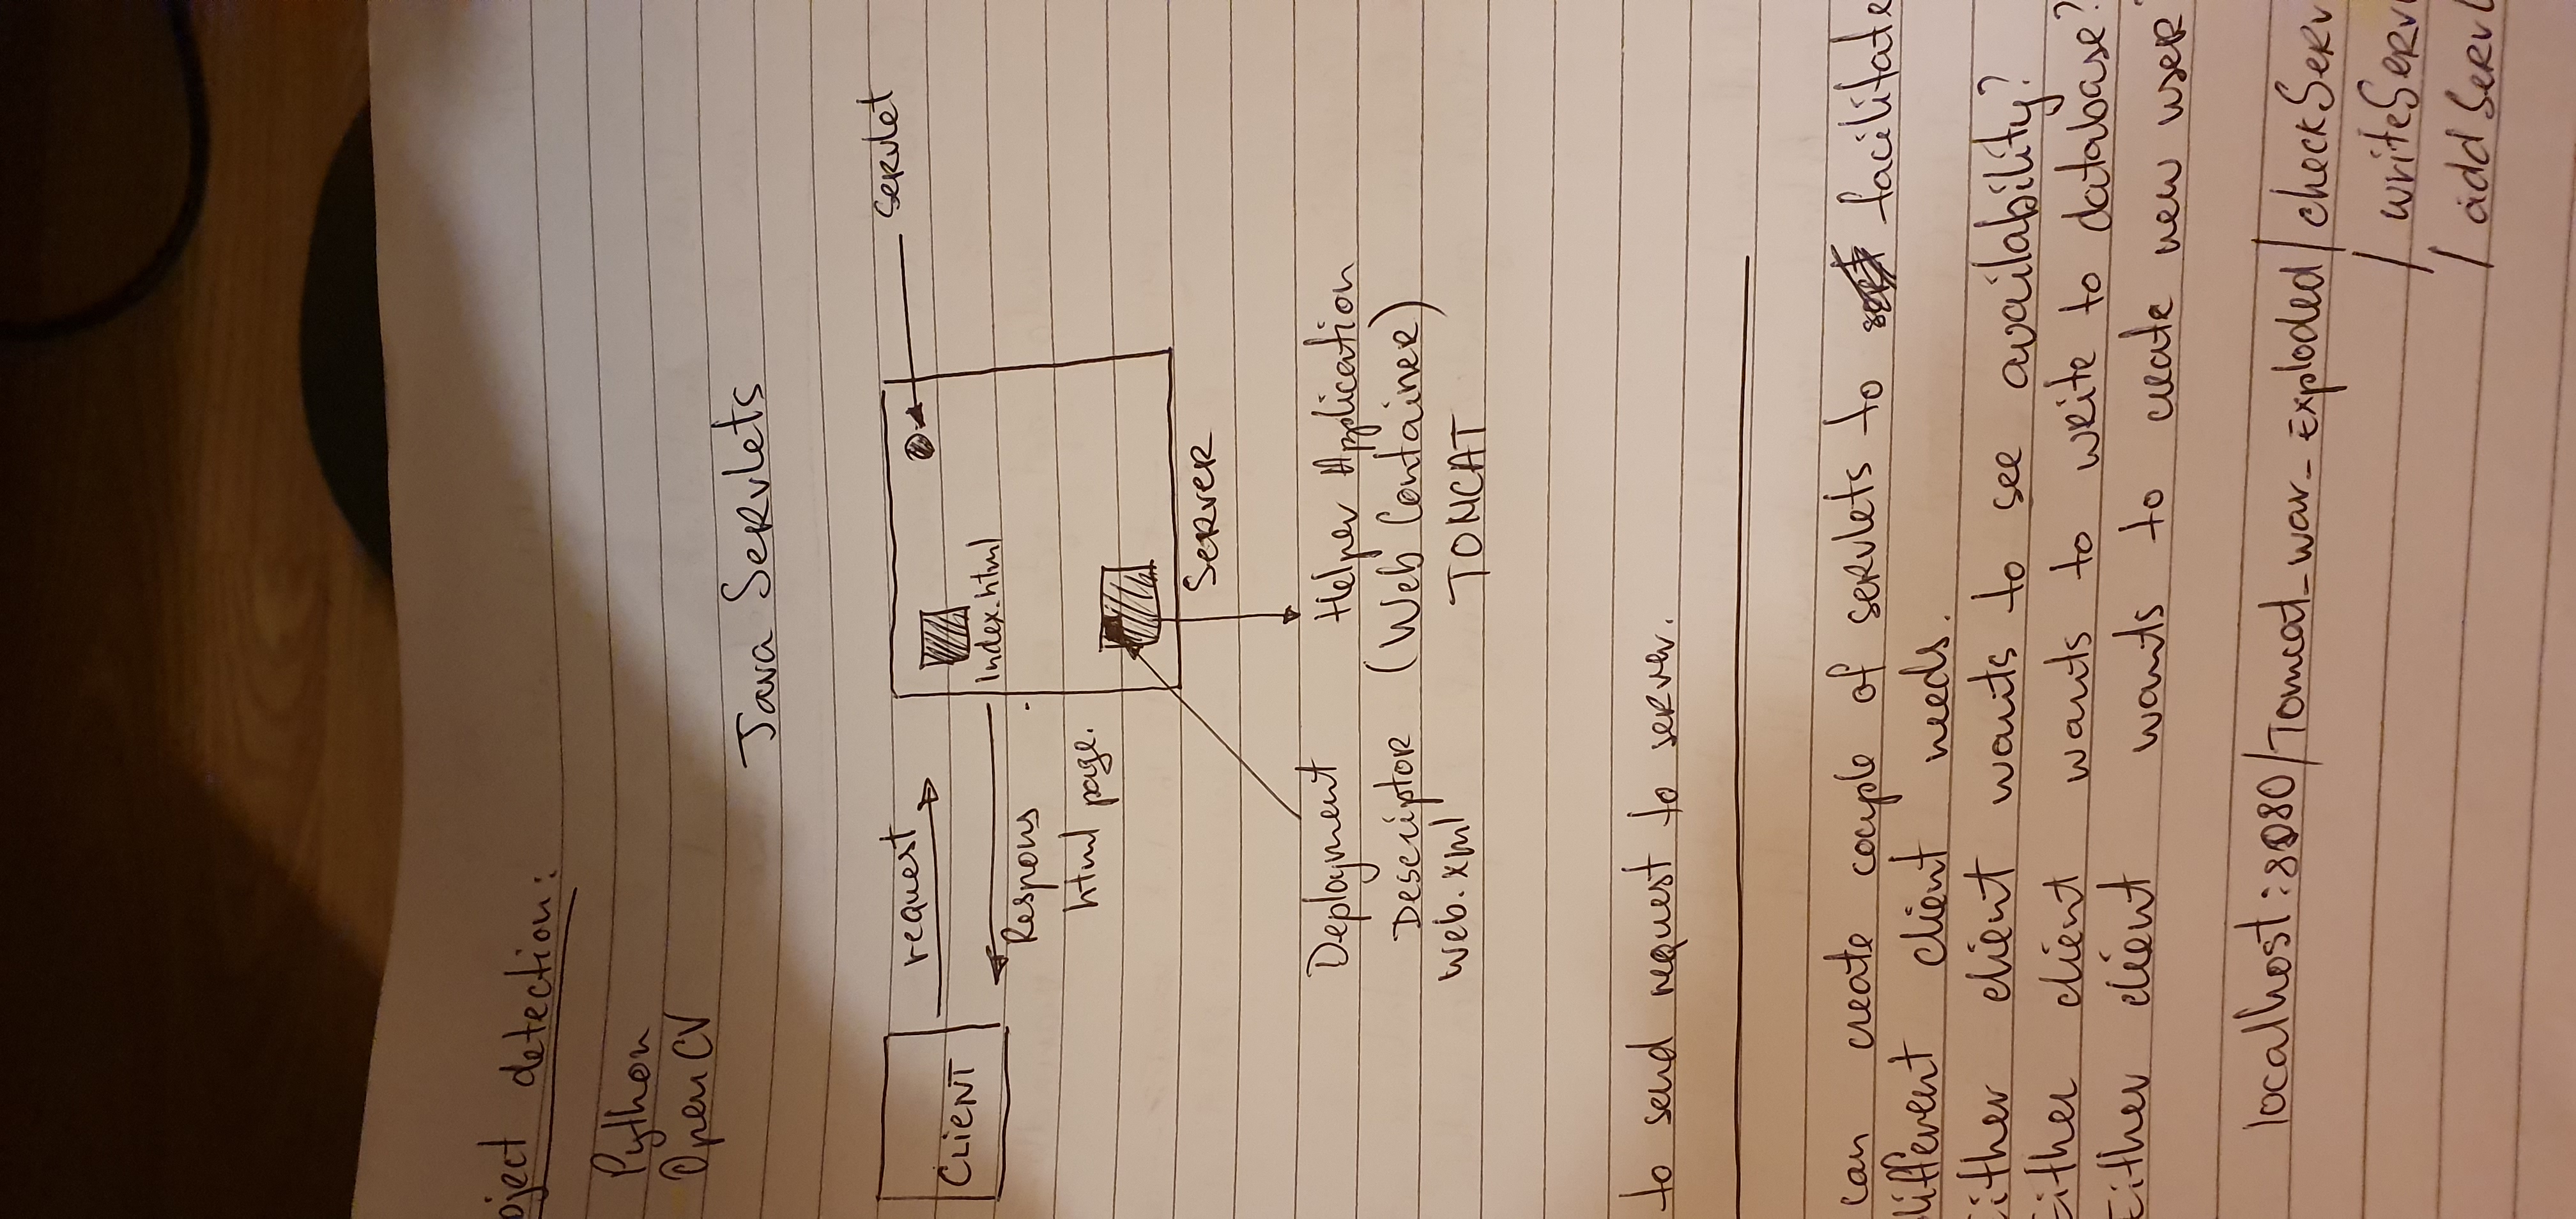 oject detection:
Python
OpenCV
Java Servlets
CLIENT
request
Respons
html page.
Index.html
servlet
Server
Deployment
Descriptor
web.xml
Helper Application
(Web Container)
TOMCAT
to send request to server.
can create couple of servlets to facilitate
different client needs.
Either client wants to see availability?
Either client wants to write to database?
Either client wants to create new user
localhost:8080/Tomcat_war_Exploded/checkServ
/ writeServ
/ addServl